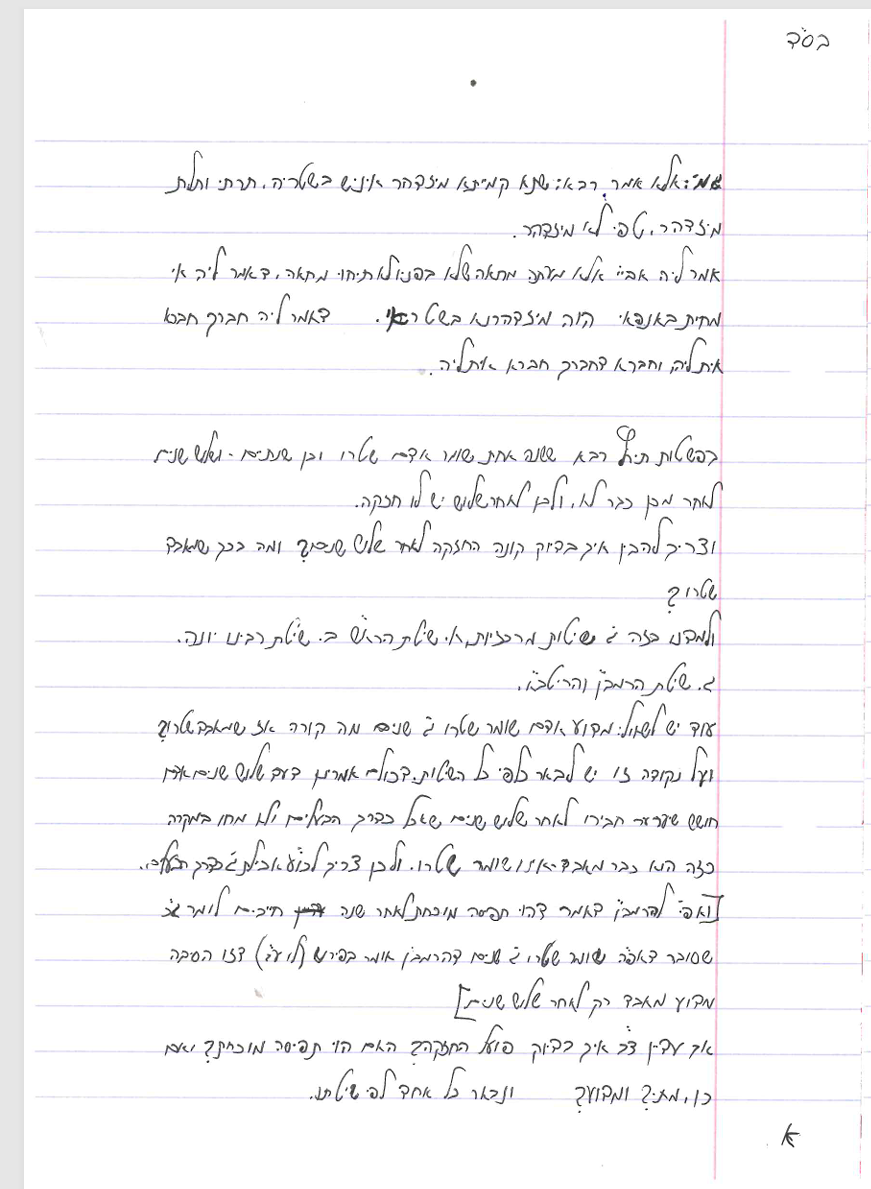 בס"ד
גמ': אלא אמר רבא: שתא קמייתא מיזדהר איניש בשטריה, תרתי ותלת
מיזדהר, טפי לא מיזדהר.
אמר ליה אביי אלא מעתה מחאה שלא בפניו לא תיהוי מחאה, דאמר ליה אי
מחית באנפאי הוה מיזדהרנא בשטראי. דאמר ליה חברך חברא
אית ליה, וחברא דחברך חברא אית ליה.
בפשטות תירץ רבא ששנה אחת שומר אדם שטרו וכן שנתים - ושלוש שנים
לאחר מכן כבר לא, ולכן לאחר שלוש יש לו חזקה.
וצריך להבין איך בדיוק קונה החזקה לאחר שלוש שנים? ומה בכך שמאבד
שטרו?
ולמדנו בזה ג' שיטות מרכזיות, א. שיטת הרא"ש ב. שיטת רבינו יונה.
ג. שיטת הרמב"ן והריטב"א.
עוד יש לשאול: מדוע אדם שומר שטרו ג' שנים מה קורה אז שמאבד שטרו?
ועל נקודה זו יש לבאר כלפי כל השיטות, דכולם אמרינן דעם שלוש שנים אדם
חושש שיערער חבירו לאחר שלוש שנים שאכל כדרך הבעלים ולא מחו במקרה
כזה הוא כבר מאבד ואינו שומר שטרו. ולכן צריך אכילת ג' כדרך הבעלים.
[ואפי' להרמב"ן דאמר דהוי תפיסה מוכחת לאחר שנה חייבים לומר
שסובר דאפ"ה שומר שטרו ג' שנים דהרמב"ן אומר בפירוש דזו הסיבה
מדוע מאבד רק לאחר שלוש שנים]
אך עדיין צ"ב איך בדיוק פועל החזקה? האם הוי תפיסה מוכחת? ואם
כן, מתי? ומדוע? ונבאר כל אחד לפי שיטתו.
א